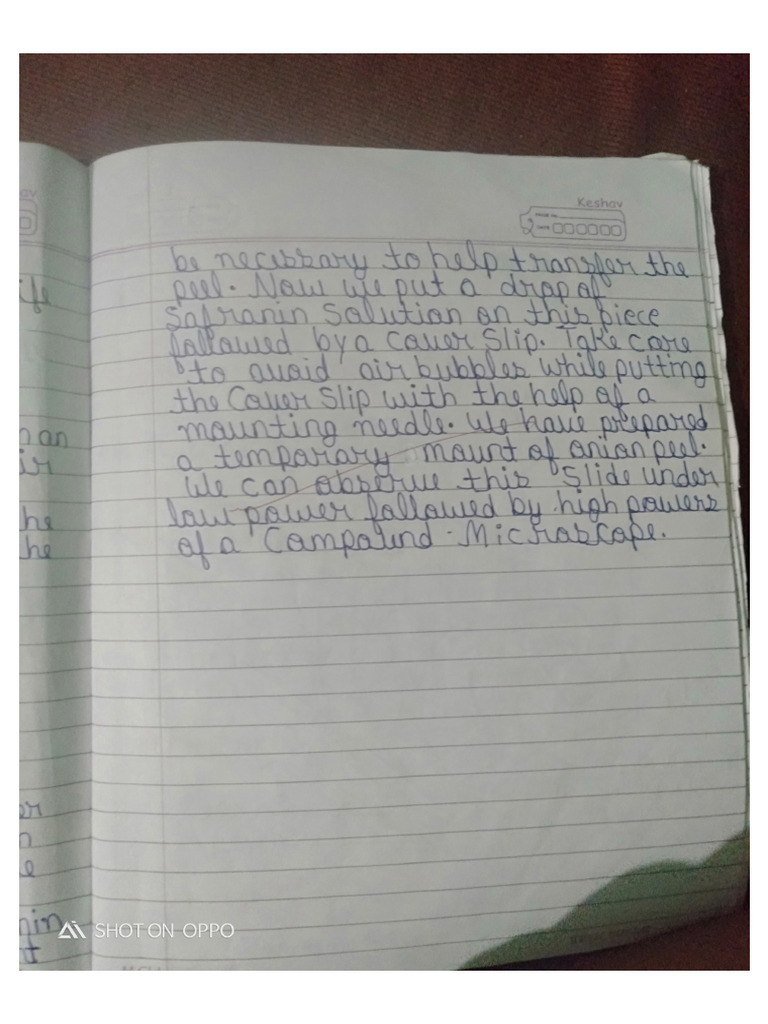 Keshav
PAGE NO.
DATE
be necessary to help transfer the
peel. Now we put a drop of
Safranin Solution on this piece
followed by a cover slip. Take care
to avoid air bubbles while putting
the Cover Slip with the help of a
mounting needle. We have prepared
a temporary mount of onion peel.
We can observe this Slide under
low power followed by high powers
of a Compound Microscope.
ife
an
ir
he
he
er
n
e
nin
t
SHOT ON OPPO